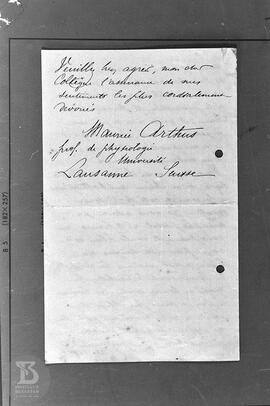 Veuillez bien agréer, mon cher
Collègue l'assurance de mes
sentiments les plus cordialement
dévoués
Maurice Arthus
prof. de physiologie
Université
Lausanne Suisse
B 5 (182 X 257)